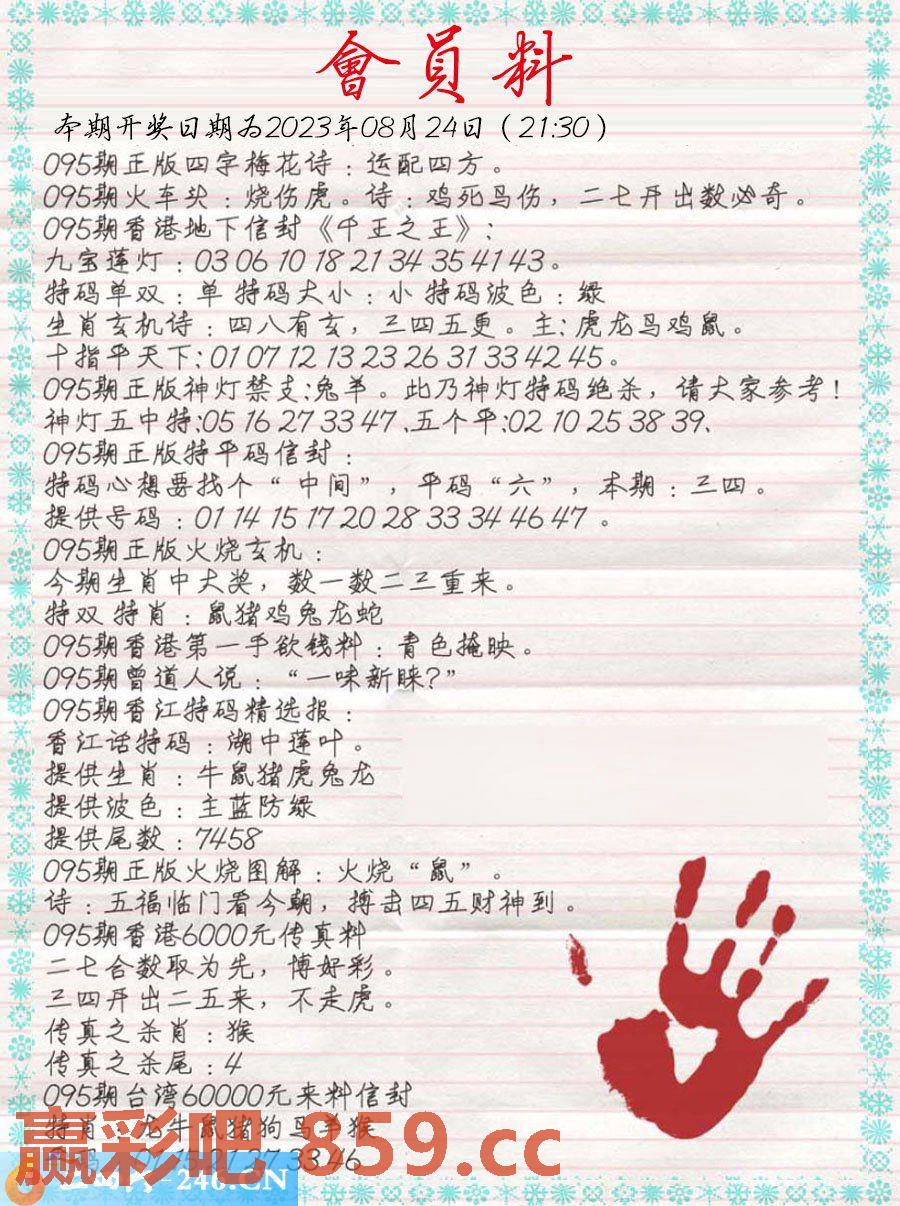 會員料
本期开奖日期为2023年08月24日（21:30）
095期正版四字梅花诗：运配四方。
095期火车头：烧伤虎。诗：鸡死马伤，二七开出数必奇。
095期香港地下信封《千王之王》：
九宝莲灯：03 06 10 18 21 34 35 41 43。
特码单双：单 特码大小：小 特码波色：绿
生肖玄机诗：四八有玄，三四五更。主：虎龙马鸡鼠。
十指平天下：01 07 12 13 23 26 31 33 42 45。
095期正版神灯禁支：兔羊。此乃神灯特码绝杀，请大家参考！
神灯五中特：05 16 27 33 47、五个平：02 10 25 38 39、
095期正版特平码信封：
特码心想要找个“中间”，平码“六”，本期：三四。
提供号码：01 14 15 17 20 28 33 34 46 47 。
095期正版火烧玄机：
今期生肖中大奖，数一数二三重来。
特双 特肖：鼠猪鸡兔龙蛇
095期香港第一手欲钱料：青色掩映。
095期曾道人说：“一味新睐？”
095期香江特码精选报：
香江话特码：湖中莲叶。
提供生肖：牛鼠猪虎兔龙
提供波色：主蓝防绿
提供尾数：7458
095期正版火烧图解：火烧“鼠”。
诗：五福临门看今朝，搏击四五财神到。
095期香港6000元传真料
二七合数取为先，博好彩。
三四开出二五来，不走虎。
传真之杀肖：猴
传真之杀尾：4
095期台湾60000元来料信封
特肖：龙牛鼠猪狗马羊猴
01 15 21 27 33 46
赢彩吧 859.cc
246.CN